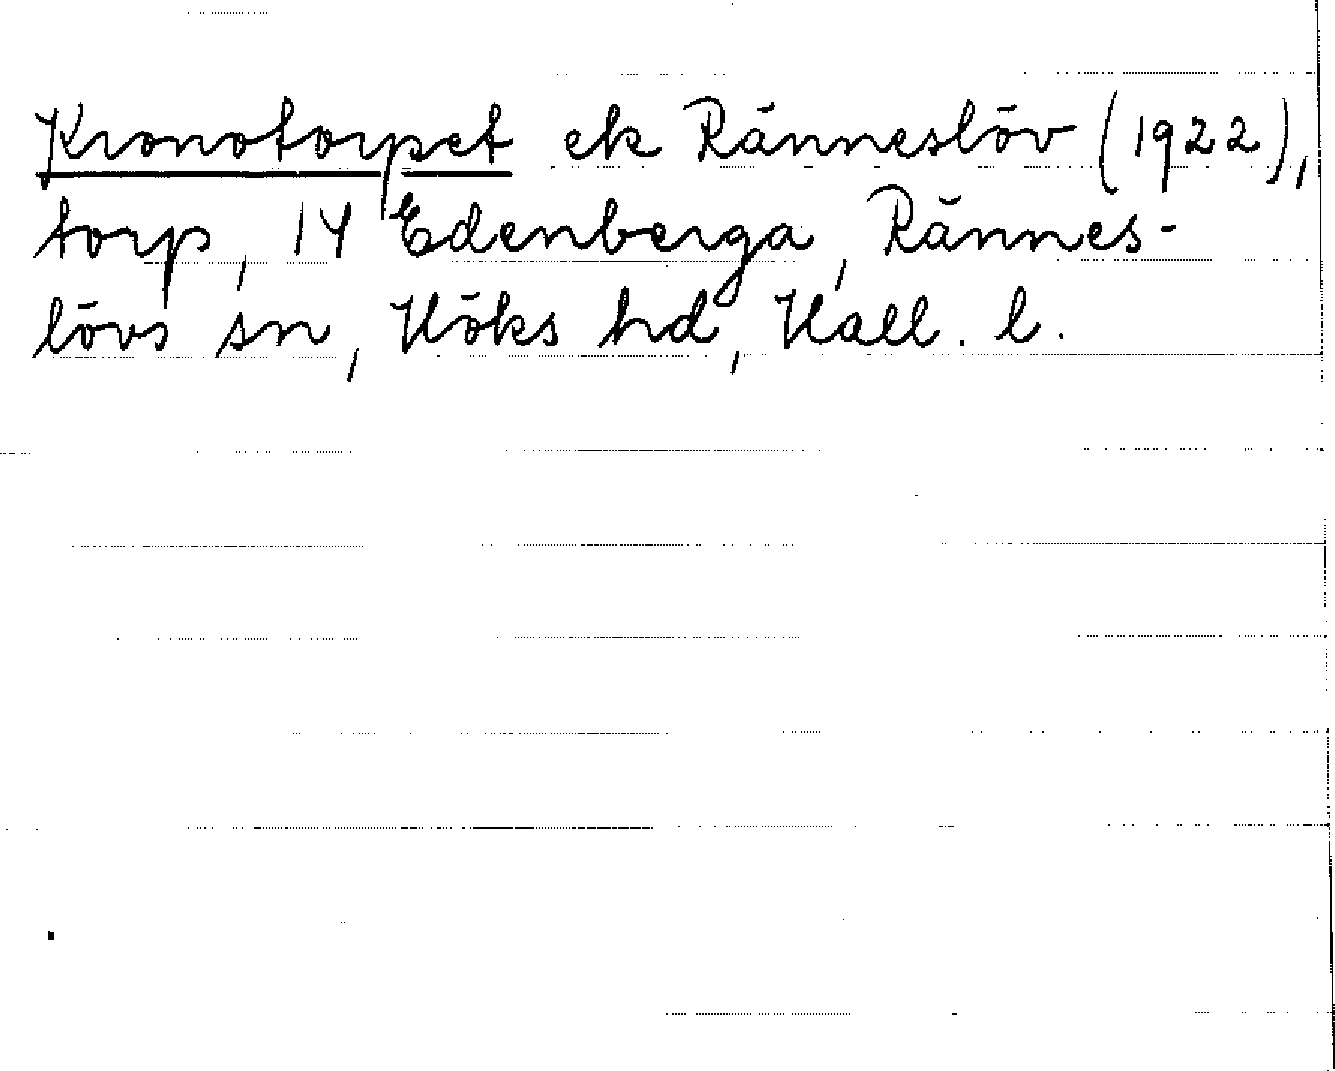 Kronotorpet ek Ränneslöv (1922),
torp, 14 Edenberga, Rännes-
lövs sn, Höks hd, Hall. l.